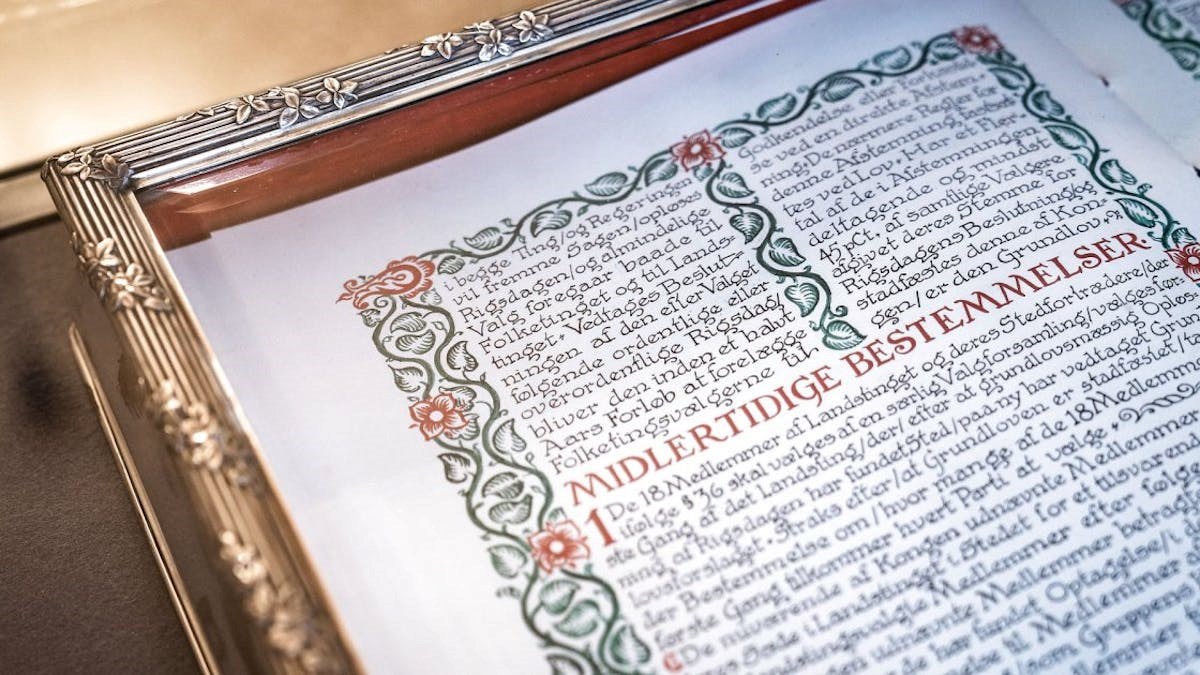 begge Ting/og Regeringen
vil fremme Sagen/opløses
Rigsdagen/og almindelige
Valg foregaar baade til
Folketinget og til Lands-
tinget. Vedtages Beslut-
ningen af den efter Valget
følgende ordentlige eller
overordentlige Rigsdag/
bliver den inden et halvt
Aars Forløb at forelægge
Folketingsvælgerne til
Godkendelse eller Forkastel-
se ved en direkte Afstem-
ning. De nærmere Regler for
denne Afstemning fastsæt-
tes ved Lov. Har et Fler-
tal af de i Afstemningen
deltagende og mindst
45 pCt. af samtlige Vælgere
afgivet deres Stemme for
Rigsdagens Beslutning/og
stadfæstes denne af Kon-
gen/er den Grundlov.
MIDLERTIDIGE BESTEMMELSER.
1 De 18 Medlemmer af Landstinget og deres Stedfortrædere/der
ifølge § 36 skal vælges af en særlig Valgforsamling/vælges før-
ste Gang af det Landsting/der/efter at grundlovsmæssig Opløs-
ning af Rigsdagen har fundet Sted/paa ny har vedtaget Grund-
lovsforslaget. Straks efter/at Grundloven er stadfæstet/
der Bestemmelse om/hvor mange af de 18 Medlemm
første Gang tilkommer hvert Parti at vælge.
De nuværende af Kongen udnævnte Medlemmer
res Sæde i Landstinget i Stedet for et tilsvarend
Landstingsvalgte Medlemmer efter følge
udnævnte Medlemmer betragt
de har fundet Optagelse/i
else til Medlemmer
/som Gruppens